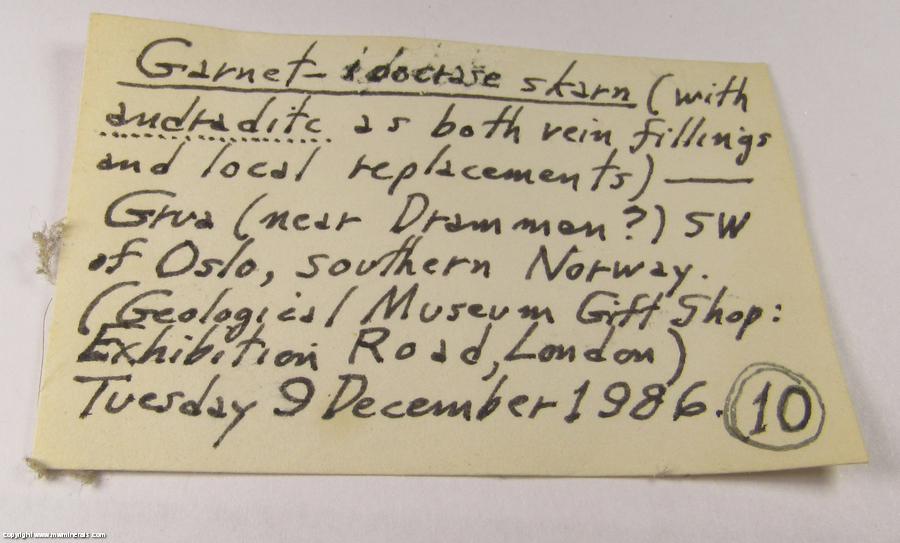 Garnet-idocrase skarn (with
andradite as both vein fillings
and local replacements) —
Grua (near Drammen?) SW
of Oslo, southern Norway.
(Geological Museum Gift Shop:
Exhibition Road, London)
Tuesday 9 December 1986. 10
copyright www.mwminerals.com